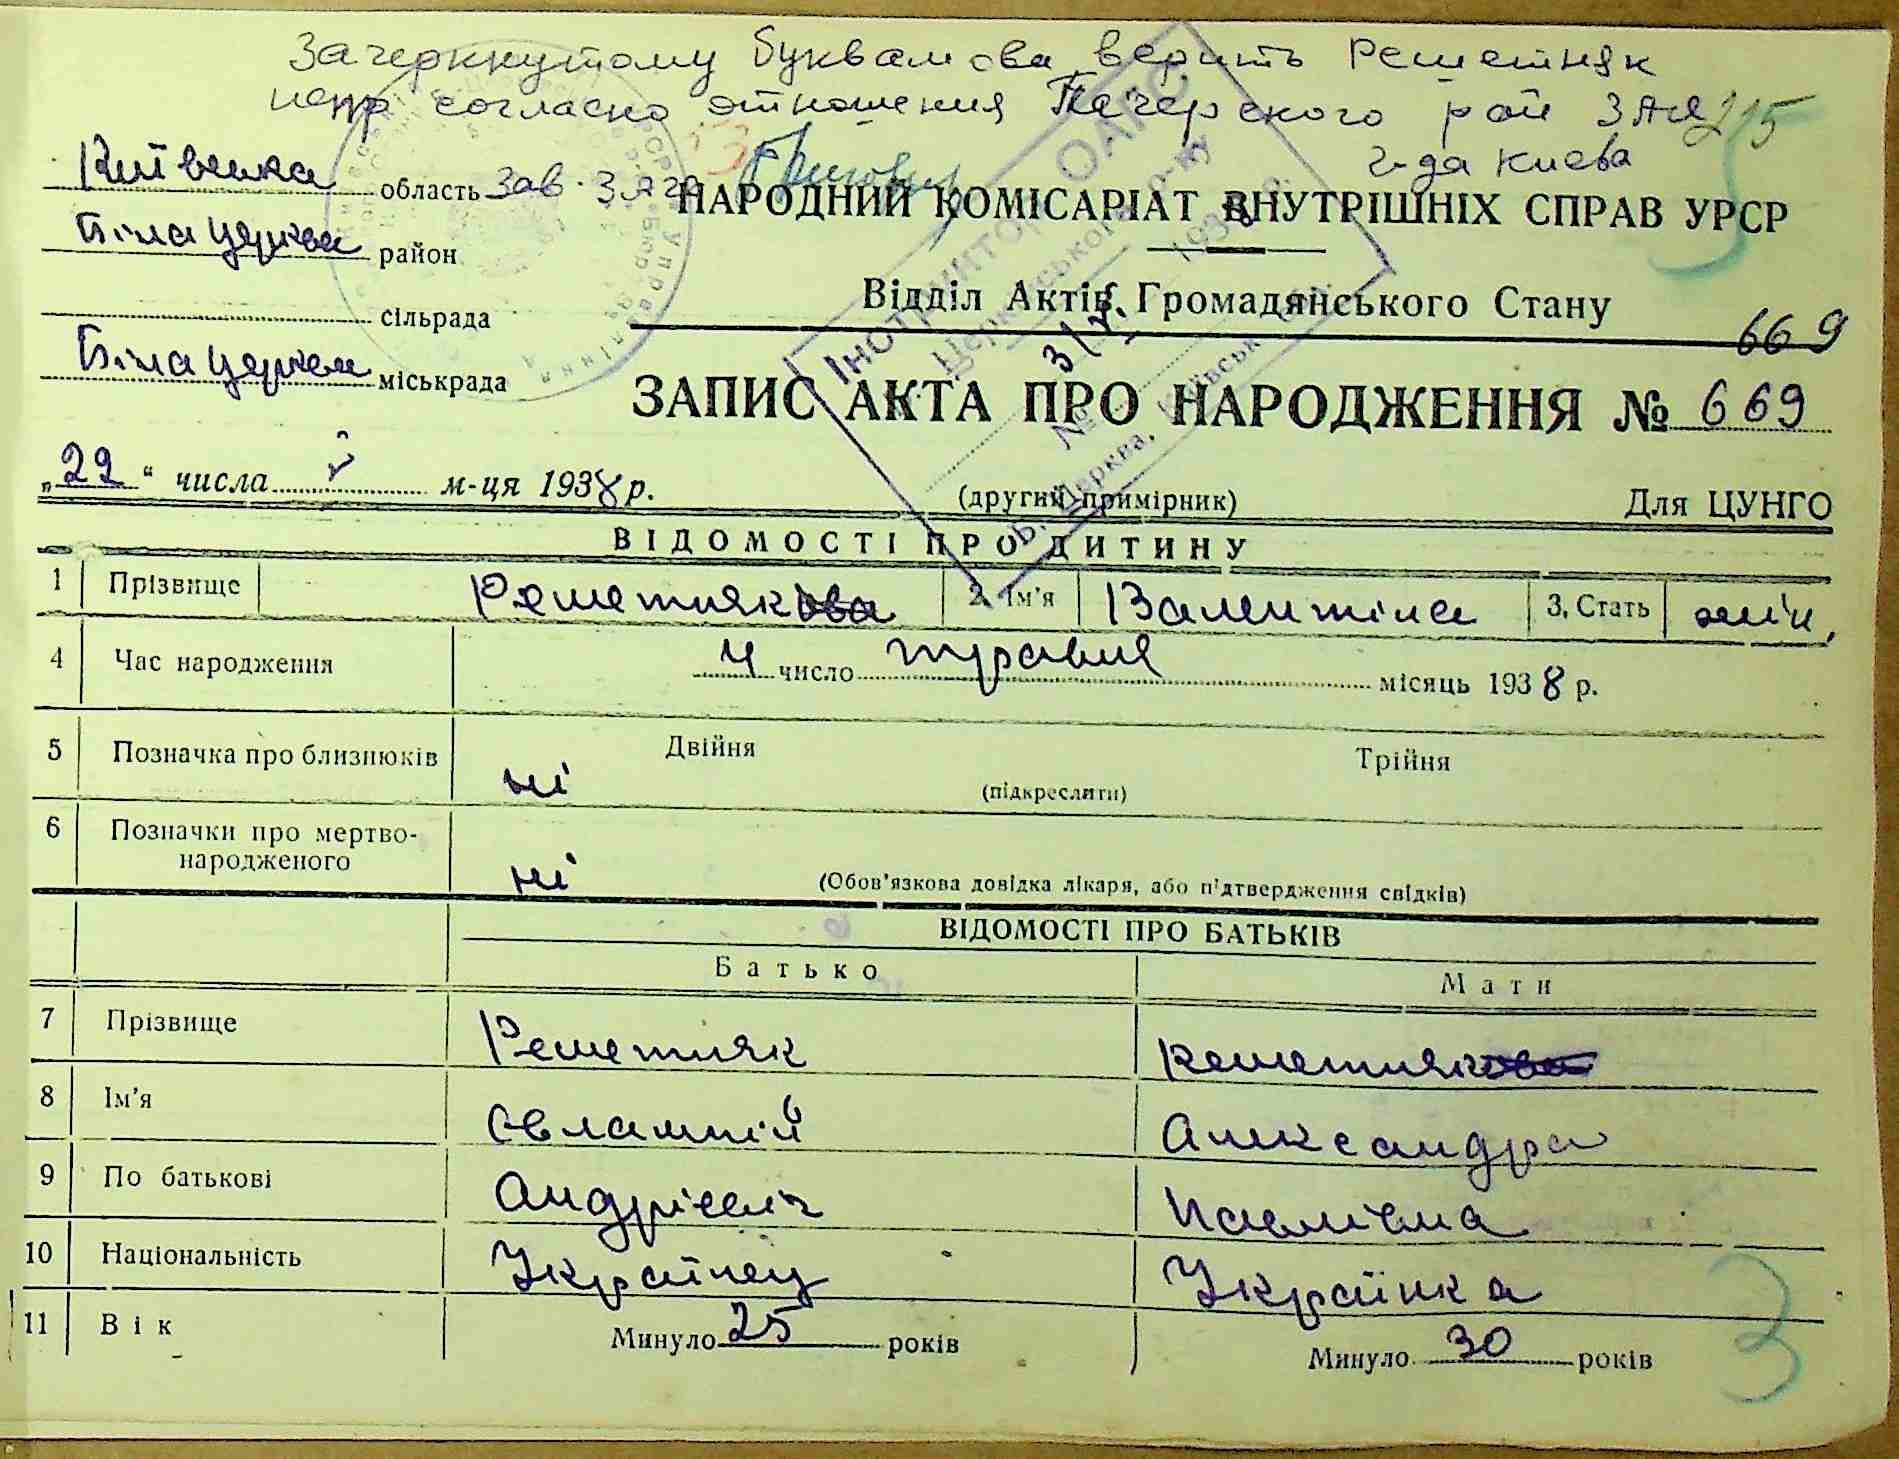 Зачеркнутому буквам ова верить Решетняк
испр согласно отношения Печерского рай ЗАГС
г-да Киева
215
Київська область Зав. ЗАГС
Біла церква район
сільрада
Біла церква міськрада
НАРОДНИЙ КОМІСАРІАТ ВНУТРІШНІХ СПРАВ УРСР
Відділ Актів Громадянського Стану
669
ЗАПИС АКТА ПРО НАРОДЖЕННЯ № 669
„22“ числа V м-ця 1938 р.
(другий примірник)
Для ЦУНГО
ВІДОМОСТІ ПРО ДИТИНУ
1 Прізвище Решетнякова 2. Ім'я Валентіна 3. Стать жін.
4 Час народження 4 число травня місяць 1938 р.
5 Позначка про близнюків ні Двійня Трійня
(підкреслити)
6 Позначки про мертво-
народженого ні (Обов'язкова довідка лікаря, або підтвердження свідків)
ВІДОМОСТІ ПРО БАТЬКІВ
Батько Мати
7 Прізвище Решетняк Решетнякова
8 Ім'я Євлампій Александра
9 По батькові Андрієвіч Павлівна
10 Національність Українец Українка
11 Вік Минуло 25 років Минуло 30 років
3